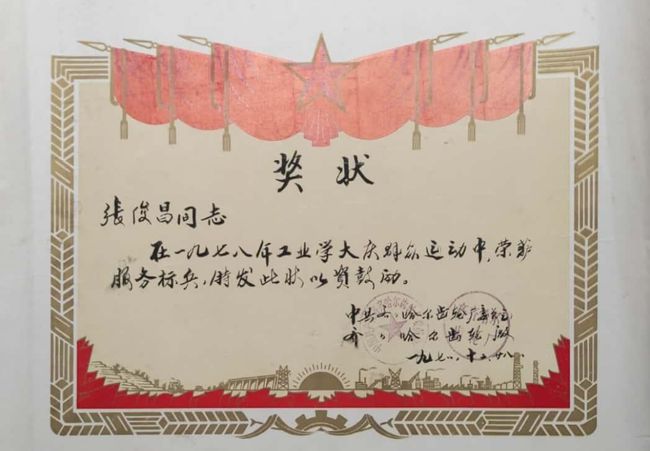 奖状
张俊昌同志
在一九七八年工业学大庆群众运动中,荣获
服务标兵,特发此状以资鼓励。
中共齐哈尔齿轮厂
齐哈尔齿轮厂
一九七八.十二.廿八